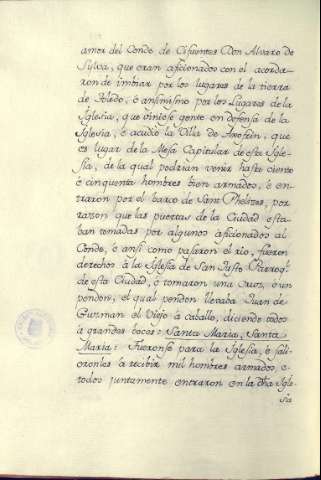 amor del Conde de Cifuentes Don Alvaro de
Sylva, que eran aficionados con el acorda-
ron de imbiar por los lugares de la tierra
de Toledo, è ansimismo por los Lugares de la
Iglesia, que viniese gente en defensa de la
Iglesia, è acudiò la Villa de Axofrin, que
es lugar de la Mesa Capitular de esta Igle-
sia, de la qual podrian venir hasta ciento
è cinquenta hombres bien armados, è en-
traron por el barco de Sant Phelizes, por
razson que las puertas de la Ciudad esta-
ban tomadas por algunos aficionados al
Conde, è ansi como pasaron el rio, fueron
derechos à la Iglesia de San Justo Parroq.ª
de esta Ciudad, è tomaron una Cruz, è un
pendon, el qual pendon llevaba Juan de
Guzman el Viejo à caballo, diciendo todos
à grandes voces: Santa Maria, Santa
Maria: Fueronse para la Iglesia, è salie-
ronles à recibir mil hombres armados, è
todos juntamente entraron en la dha Igle-
sia